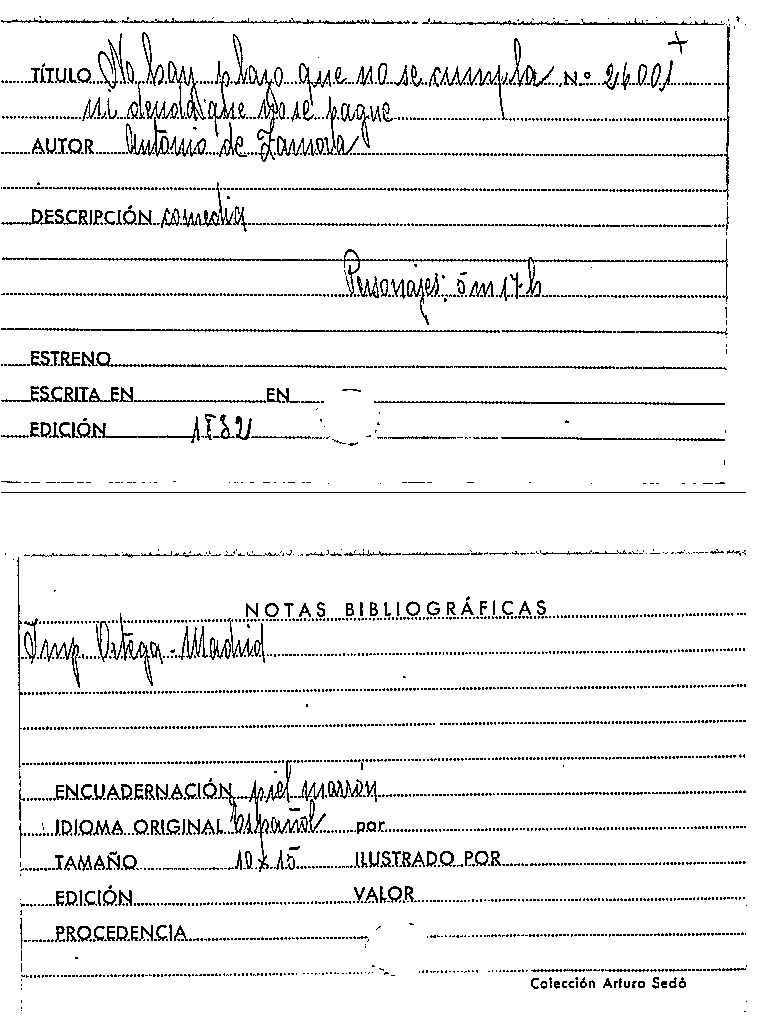 TÍTULO No hay plazo que no se cumpla Nº 26001
ni deuda que no se pague
AUTOR Antonio de Zamora
DESCRIPCIÓN comedia
Personajes: 5 m 17 h
ESTRENO
ESCRITA EN EN
EDICIÓN 1832
NOTAS BIBLIOGRÁFICAS
Imp. Ortega - Madrid
ENCUADERNACIÓN piel marrón
IDIOMA ORIGINAL Español por
TAMAÑO 10 x 15 ILUSTRADO POR
EDICIÓN VALOR
PROCEDENCIA
Colección Arturo Sedó